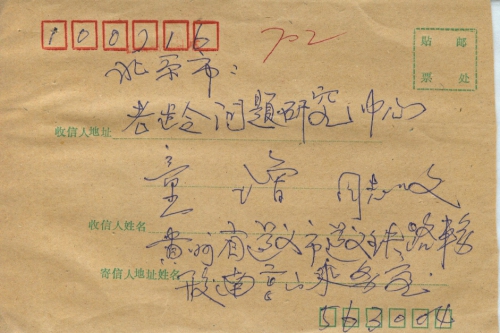 100716 702
贴 邮
票 处
北京市:
收信人地址 老龄问题研究中心
童增 同志收
收信人姓名
贵州省遵义市遵义铁路
寄信人地址姓名 段南宫山乘
563004